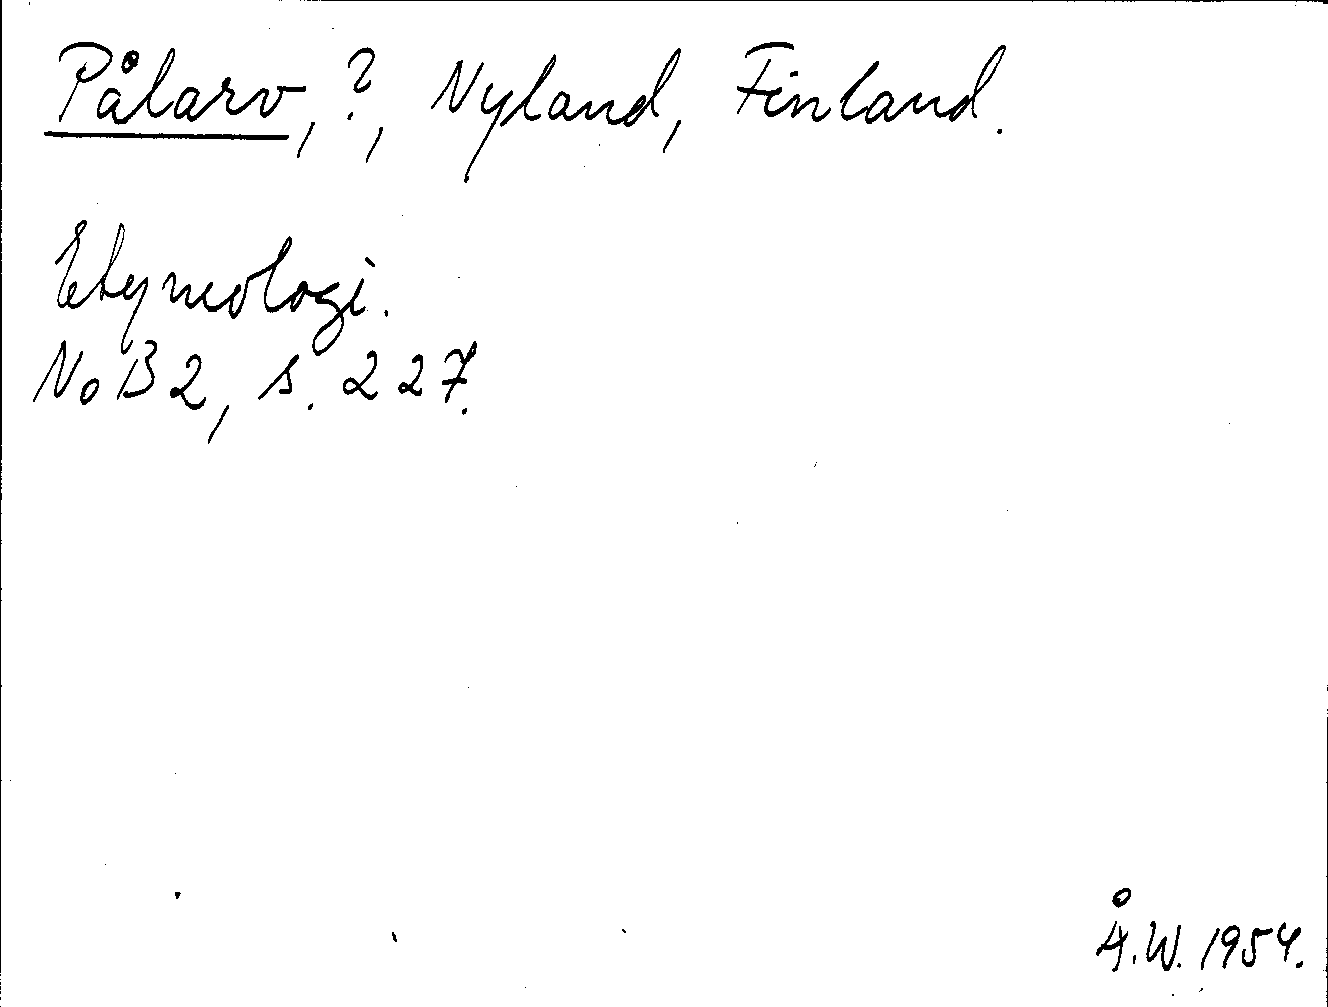 Pålarv, ?, Nyland, Finland.
Etymologi.
NoB 2, s. 227.
Å.W. 1954.